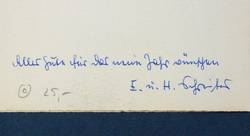 Alles Gute für das neue Jahr wünschen
E. u. H. Schreiter
© 25,-